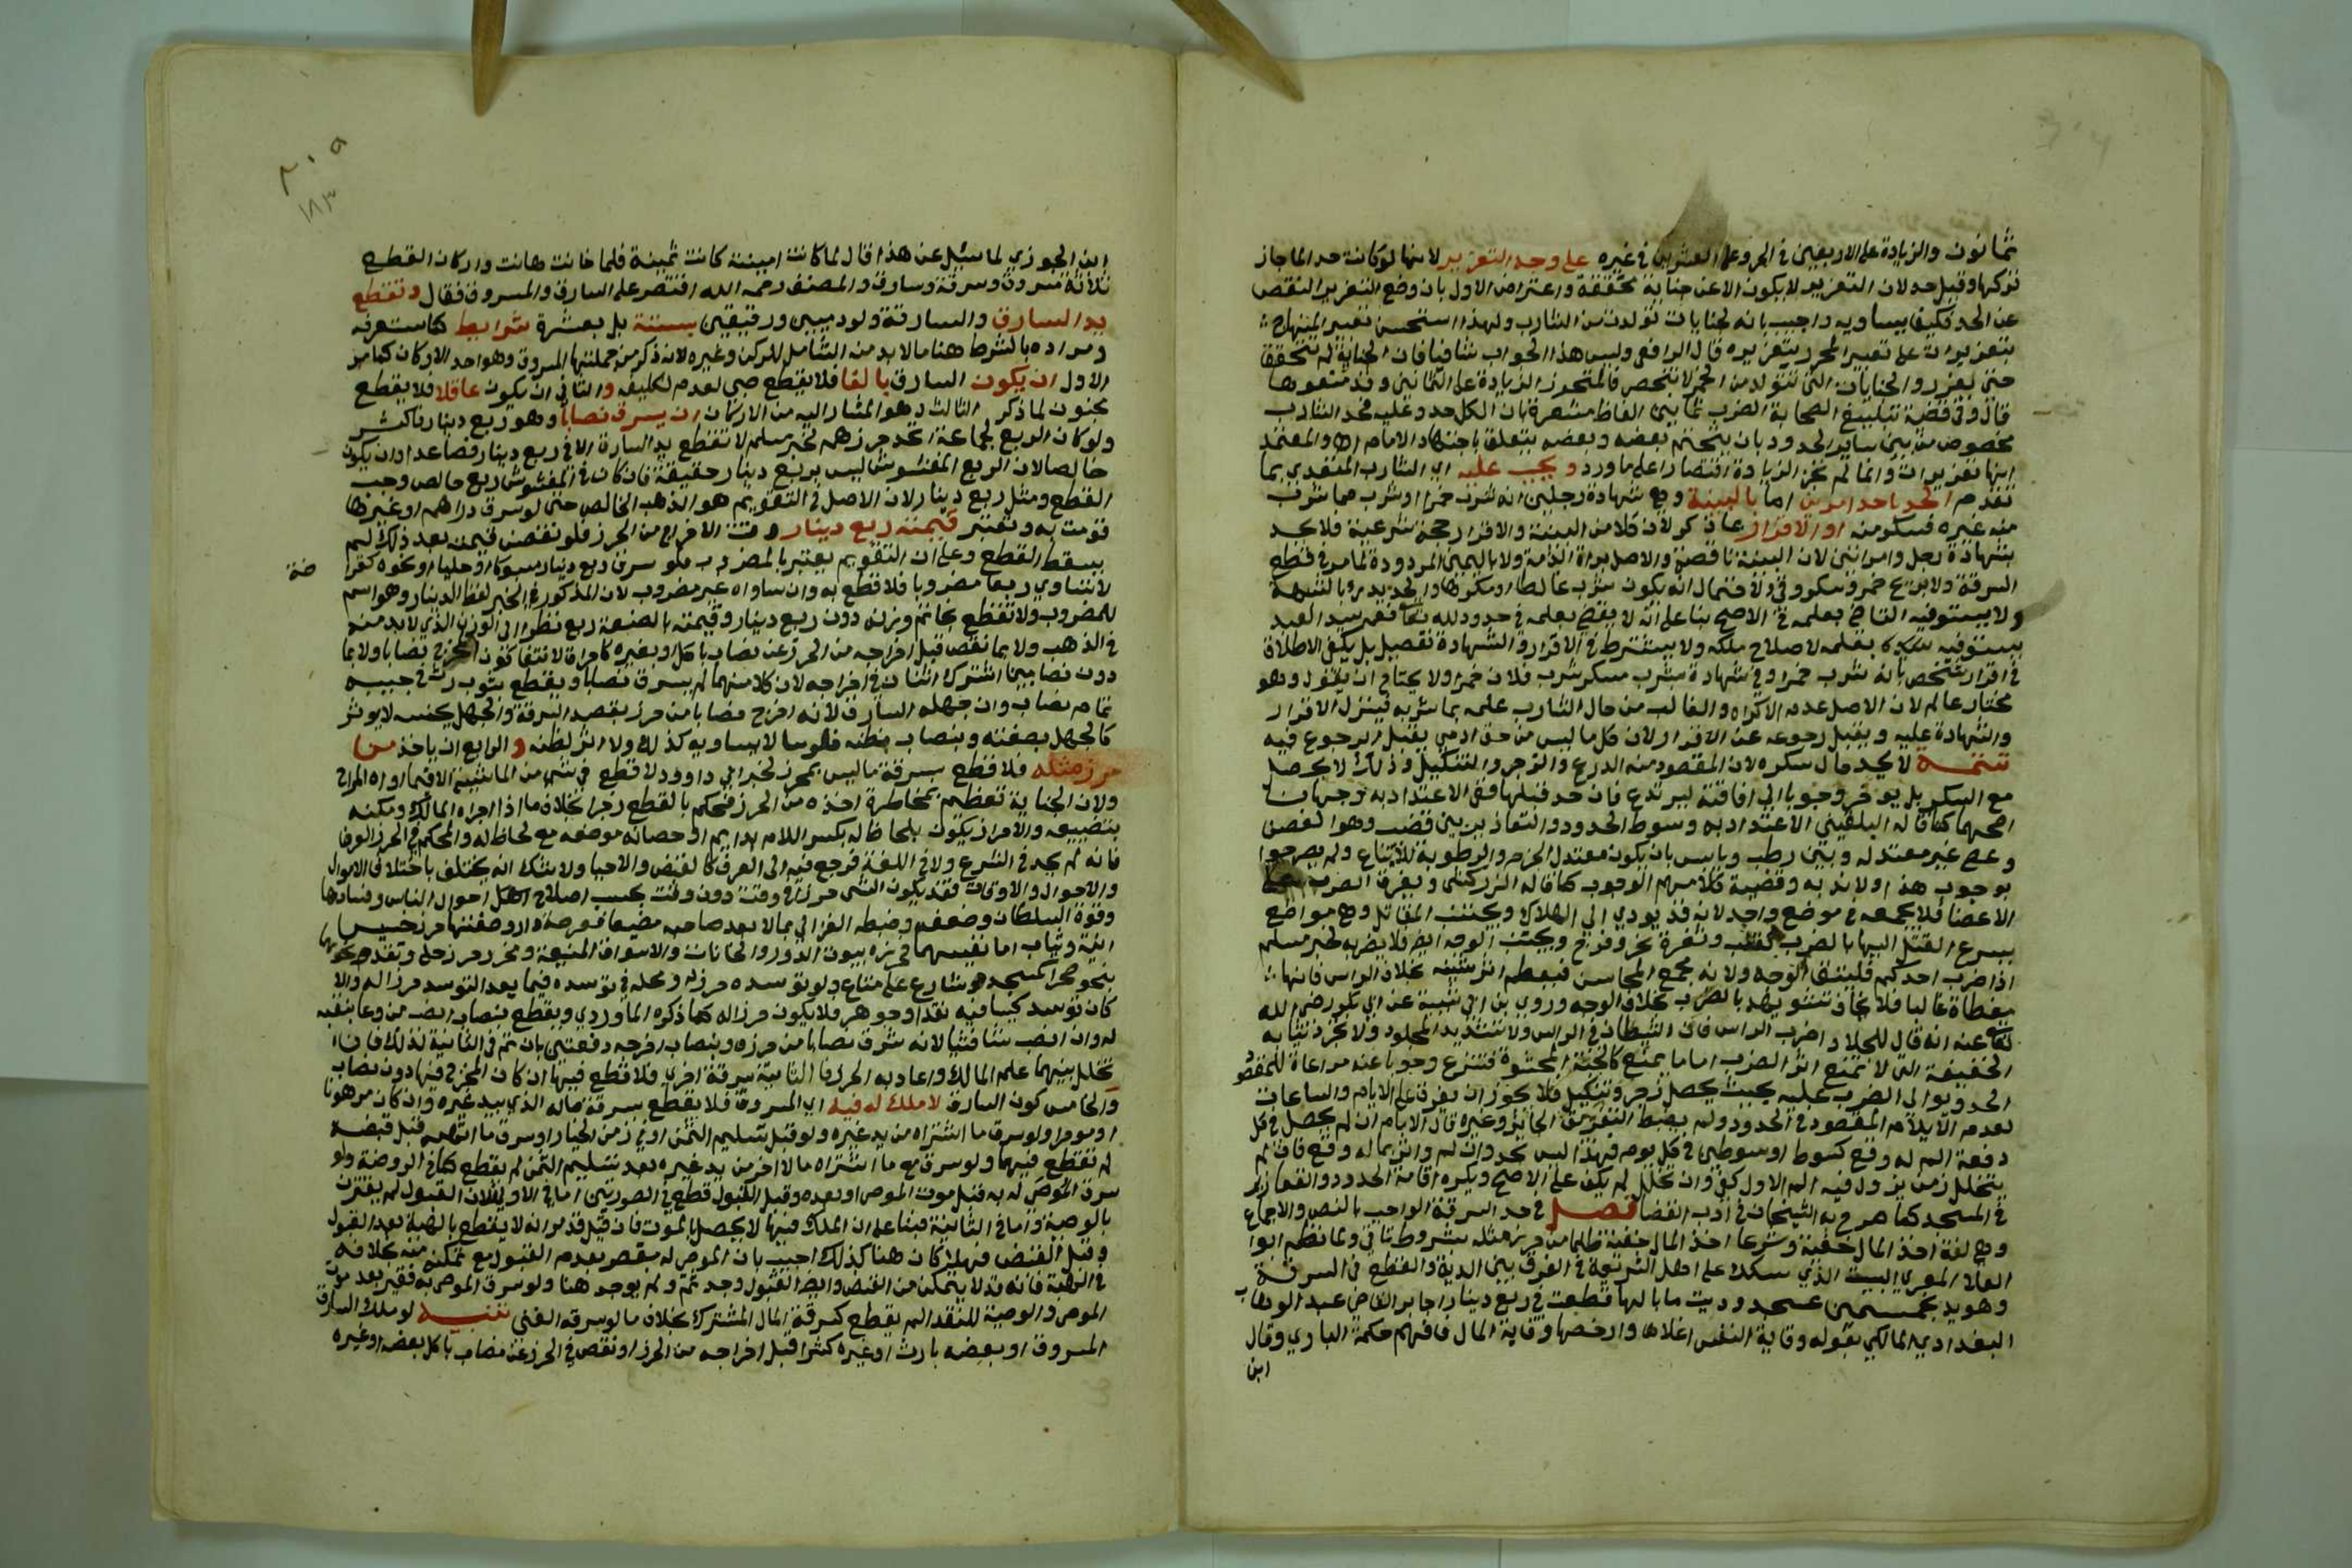 ثمانون والزيادة على الاربعين في الحر وعلى العشرين في غيره على وجه التعزير لانها لو كانت حدا لما جاز
تركها وقيل حد لان التعزير لا يكون الا عن جناية محققة واعترض الاول بان وضع التعزير النقص
عن الحد فكيف يساويه واجيب بانه لجنايات تولدت من الشارب ولهذا استحسن تعبير المنهاج
بتعزيرات على تعبير المحرر بتعزيره قال الرافعي وليس هذا الجواب شافيا فان الجناية لم تتحقق
حتى يعزر والجنايات التي تتولد من الخمر لا تنحصر فلتجز الزيادة على الثمانين وقد منعوها
قال وفي قصة تبليغ الصحابة الضرب ثمانين الفاظ مشعرة بان الكل حد وعليه فحد الشارب
مخصوص من بين ساير الحدود بان يتحتم بعضه وبعضه يتعلق باجتهاد الامام اه والمعتمد
انها تعزيرات وانما لم تجز الزيادة اقتصارا على ما ورد ويجب عليه اي الشارب المتقدي بما
تقدم الحد باحد امرين اما بالبينة وهي شهادة رجلين انه شرب خمرا او شرب مما شرب
منه غيره فسكر منه او الاقرار بما ذكر لان كلا من البينة والاقرار حجة شرعية فلا يحد
بشهادة رجل وامراتين لان البينة ناقصة والاصل براءة الذمة ولا باليمين المردودة لما مر في قطع
السرقة ولا بريح خمر وسكر وقي لاحتمال ان يكون شرب غالطا او مكرها والحد يدرا بالشبهة
ولا يستوفيه القاضي بعلمه في الاصح بنا على انه لا يقضي بعلمه في حدود الله تعالى نعم سيد العبد
يستوفيه بعلمه لاصلاح ملكه ولا يشترط في الاقرار والشهادة تفصيل بل يكفي الاطلاق
في اقرار شخص بانه شرب خمرا وفي شهادة بشرب مسكر شرب فلان خمرا ولا يحتاج ان يقول وهو
مختار عالم لان الاصل عدم الاكراه والغالب من حال الشارب علمه بما يشربه فينزل الاقرار
والشهادة عليه ويقبل رجوعه عن الاقرار لان كل ما ليس من حق ادمي يقبل الرجوع فيه
تتمة لا يحد حال سكره لان المقصود منه الردع والزجر والتنكيل وذلك لا يحصل
مع السكر بل يوخر وجوبا الى افاقته ليرتدع فان حد قبلها ففي الاعتداد به وجهان
اصحهما كما قاله البلقيني الاعتداد به وسوط الحدود والتعازير بين قضيب وهو الغصن
وعصى غير معتدلة وبين رطب ويابس بان يكون معتدل الجرم والرطوبة للاتباع ولم يصرحوا
بوجوب هذا ولا بندبه وقضية كلامهم الوجوب كما قاله الزركشي ويفرق الضرب على
الاعضا فلا يجمعه في موضع واحد لانه قد يودي الى الهلاك ويجتنب المقاتل وهي مواضع
يسرع القتل اليها بالضرب كقلب وثغرة نحر وفرج ويجتنب الوجه ايضا فلا يضربه لخبر مسلم
اذا ضرب احدكم فليتق الوجه ولانه مجمع المحاسن فيعظم اثر شينه بخلاف الراس فانها
مغطاة غالبا فلا يخاف تشويهه بالضرب بخلاف الوجه وروى بن ابي شيبة عن ابي بكر رضي الله
تعالى عنه انه قال للجلاد اضرب الراس فان الشيطان في الراس ولا تشد يد المجلود ولا تجرد ثيابه
الخفيفة التي لا تمنع اثر الضرب اما ما يمنع كالجبة المحشوة فتنزع وجوبا عنه مراعاة للمقصود
الحد ويوالى الضرب عليه بحيث يحصل زجر وتنكيل فلا يجوز ان يفرق على الايام والساعات
لعدم الايلام المقصود في الحدود ولم يضبط التفريق الجائز وغيره قال الامام ان لم يحصل في كل
دفعة الم له وقع كسوط او سوطين في كل يوم فهذا ليس بحد وان الم واثر بما له وقع فان لم
يتخلل زمن يزول فيه الم الاول كفى وان تخلل لم يكف على الاصح ويكره اقامة الحدود والتعازير
في المسجد كما صرح به الشيخان في ادب القضا فصل في حد السرقة الواجب بالنص والاجماع
وهي لغة اخذ المال خفية وشرعا اخذ المال خفية ظلما من حرز مثله بشروط تاتي ولما نظم ابو
العلا المعري البيت الذي شكك على اهل الشريعة في الفرق بين الدية والقطع في السرقة
وهو يد بخمس مئين عسجد وديت ما بالها قطعت في ربع دينار اجابه القاضي عبد الوهاب
البغدادي المالكي بقوله وقاية النفس اغلاها وارخصها وقاية المال فافهم حكمة الباري وقال
ابن
ابن الجوزي لما سئل عن هذا قال لما كانت امينة كانت ثمينة فلما خانت هانت واركان القطع
ثلاثة مسروق وسرقة وسارق والمصنف رحمه الله اقتصر على السارق والمسروق فقال وتقطع
يد السارق والسارقة ولو ذميين ورقيقين بستة بل بعشرة شرايط كما ستعرفه
ومراده بالشرط هنا ما لا بد منه الشامل للركن وغيره لانه ذكر من جملتها المسروق وهو احد الاركان كما مر
الاول ان يكون السارق بالغا فلا يقطع صبي لعدم تكليفه والثاني ان يكون عاقلا فلا يقطع
مجنون لما ذكر الثالث وهو المشار اليه من الاركان ان يسرق نصابا وهو ربع دينار فاكثر
ولو كان الربع لجماعة اتحد حرزهم لخبر مسلم لا تقطع يد السارق الا في ربع دينار فصاعدا وان يكون
خالصا لان الربع المغشوش ليس بربع دينار حقيقة فان كان في المغشوش ربع خالص وجب
القطع ومثل ربع دينار لان الاصل في التقويم هو الذهب الخالص حتى لو سرق دراهم او غيرها
قومت به وتعتبر قيمته ربع دينار وقت الاخراج من الحرز فلو نقصت قيمته بعد ذلك لم
يسقط القطع وعلى ان التقويم يعتبر بالمضروب فلو سرق ربع دينار مسبوكا او حليا او نحوه كقرا
ضة
لا تساوي ربعا مضروبا فلا قطع به وان ساواه غير مضروب لان المذكور في الخبر لفظ الدينار وهو اسم
للمضروب ولا تقطع بخاتم وزنه دون ربع دينار وقيمته بالصنعة ربع نظرا الى الوزن الذي لا بد منه
في الذهب ولا بما نقص قبل اخراجه من الحرز عن نصاب باكل او بغيره كاحراق لانتفا كون المخرج نصابا ولا بما
دون نصابين اشترك اثنان في اخراجه لان كلا منهما لم يسرق نصابا ويقطع بثوب رث في جيبه
تمام نصاب وان جهله السارق لانه اخرج نصابا من حرز بقصد السرقة والجهل بجنسه لا يوثر
كالجهل بصفته وبنصاب ظنه فلوسا لا يساويه كذلك ولا اثر لظنه والرابع ان ياخذ من
حرز مثله فلا قطع بسرقة ما ليس بمحرز لخبر ابي داوود لا قطع في شي من الماشية الا فيما اواه المراح
ولان الجناية تعظم بمخاطرة اخذه من الحرز فحكم بالقطع زجرا بخلاف ما اذا جراه المالك ومكنه
بتضييعه والاحراز يكون بلحاظ له بكسر اللام دايم او حصانة موضعه مع لحاظ له والمحكم في الحرز العرف
فانه لم يحد في الشرع ولا في اللغة فرجع فيه الى العرف كالقبض والاحيا ولا شك انه يختلف باختلاف الاموال
والاحوال والاوقات فقد يكون الشي حرزا في وقت دون وقت بحسب صلاح احوال الناس وفسادها
وقوة السلطان وضعفه وضبطه الغزالي بما لا يعد صاحبه مضيعا فعرصة دار وصفتها حرز خسيس
انية وثياب اما نفيسهما فحرزه بيوت الدور والخانات والاسواق المنيعة ومخزن حرز حلي ونقد ونحوهما
بنحو صحرا كمسجد وشارع على متاع ولو توسده حرز له ومحله في توسده فيما يعد التوسد حرزا له والا
كان توسد كيسا فيه نقد او جوهر فلا يكون حرزا له كما ذكره الماوردي ويقطع بنصاب انصب من وعا بنقبه
له وان انصب شيا فشيا لانه سرق نصابا من حرزه وبنصاب اخرجه دفعتين بان تم في الثانية لذلك فان
تخلل بينهما علم المالك واعادة الحرز فالثانية سرقة اخرى فلا قطع فيها ان كان المخرج فيها دون نصاب
والخامس كون السارق لا ملك له فيه اي المسروق فلا يقطع بسرقة ماله الذي بيد غيره وان كان مرهونا
او موجرا ولو سرق ما اشتراه من يد غيره ولو قبل تسليم الثمن او في زمن الخيار او سرق ما اتهبه قبل قبضه
لم تقطع فيهما ولو سرق مع ما اشتراه مالا اخر من يد غيره بعد تسليم الثمن لم يقطع كما في الروضة ولو
سرق الموصى له به قبل موت الموصي او بعده وقبل القبول قطع في الصورتين اما في الاولى فلان القبول لم يقترن
بالوصية واما في الثانية فبنا على ان الملك فيها لا يحصل بالموت فان قيل قد مر انه لا يقطع بالهبة بعد القبول
وقبل القبض فهلا كان هنا كذلك اجيب بان الموصى له مقصر بعدم القبول مع تمكنه منه بخلافه
في الهبة فانه قد لا يتمكن من القبض وايضا القبول وجد ثم ولم يوجد هنا ولو سرق الموصى به فقير بعد موت
الموصي والوصية للفقرا لم يقطع كسرقة المال المشترك بخلاف ما لو سرقه الغني تنبيه لو ملك السارق
المسروق او بعضه بارث او غيره كشرا قبل اخراجه من الحرز او نقص في الحرز عن نصاب باكل بعضه او غيره